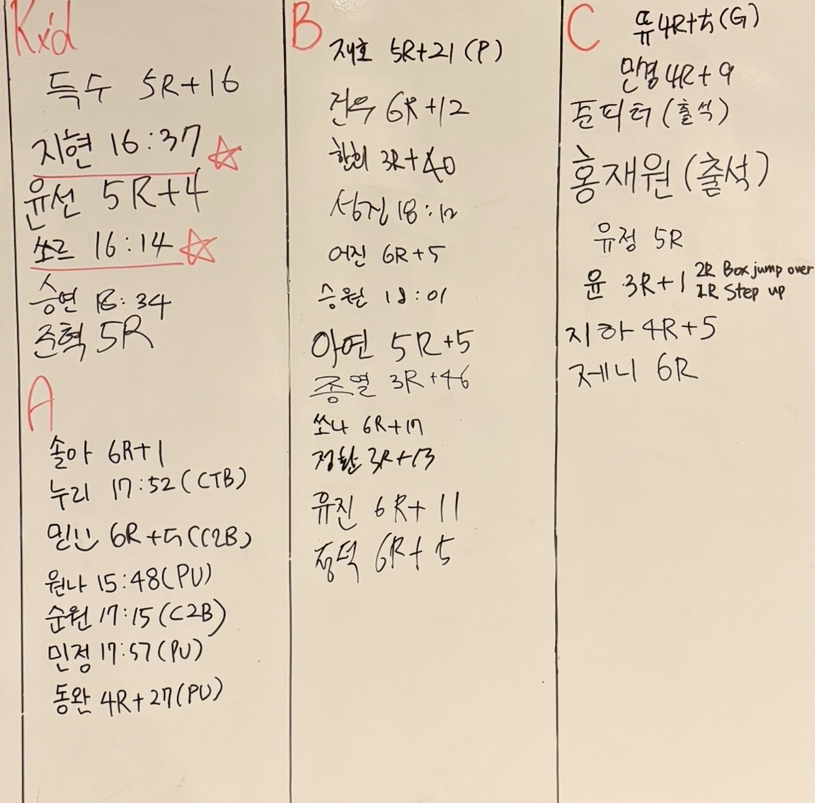 Rx'd
득수 5R+16
지현 16:37
윤선 5R+4
쏘르 16:14
승연 18:34
준혁 5R
A
솔아 6R+1
누리 17:52(CTB)
6R+5(C2B)
원나 15:48(PU)
순원 17:15(C2B)
민정 17:57(PU)
동완 4R+27(PU)
B
재호 5R+21(P)
건우 6R+12
한희 3R+40
성진 18:12
어진 6R+5
승원 18:01
아연 5R+5
종열 3R+46
쏘나 6R+17
정환 3R+13
유진 6R+11
정덕 6R+5
C
쀼 4R+5(G)
민경 4R+9
준피터(출석)
홍재원(출석)
유정 5R
윤 3R+1 2R Box jump over
2R Step up
지하 4R+5
제니 6R